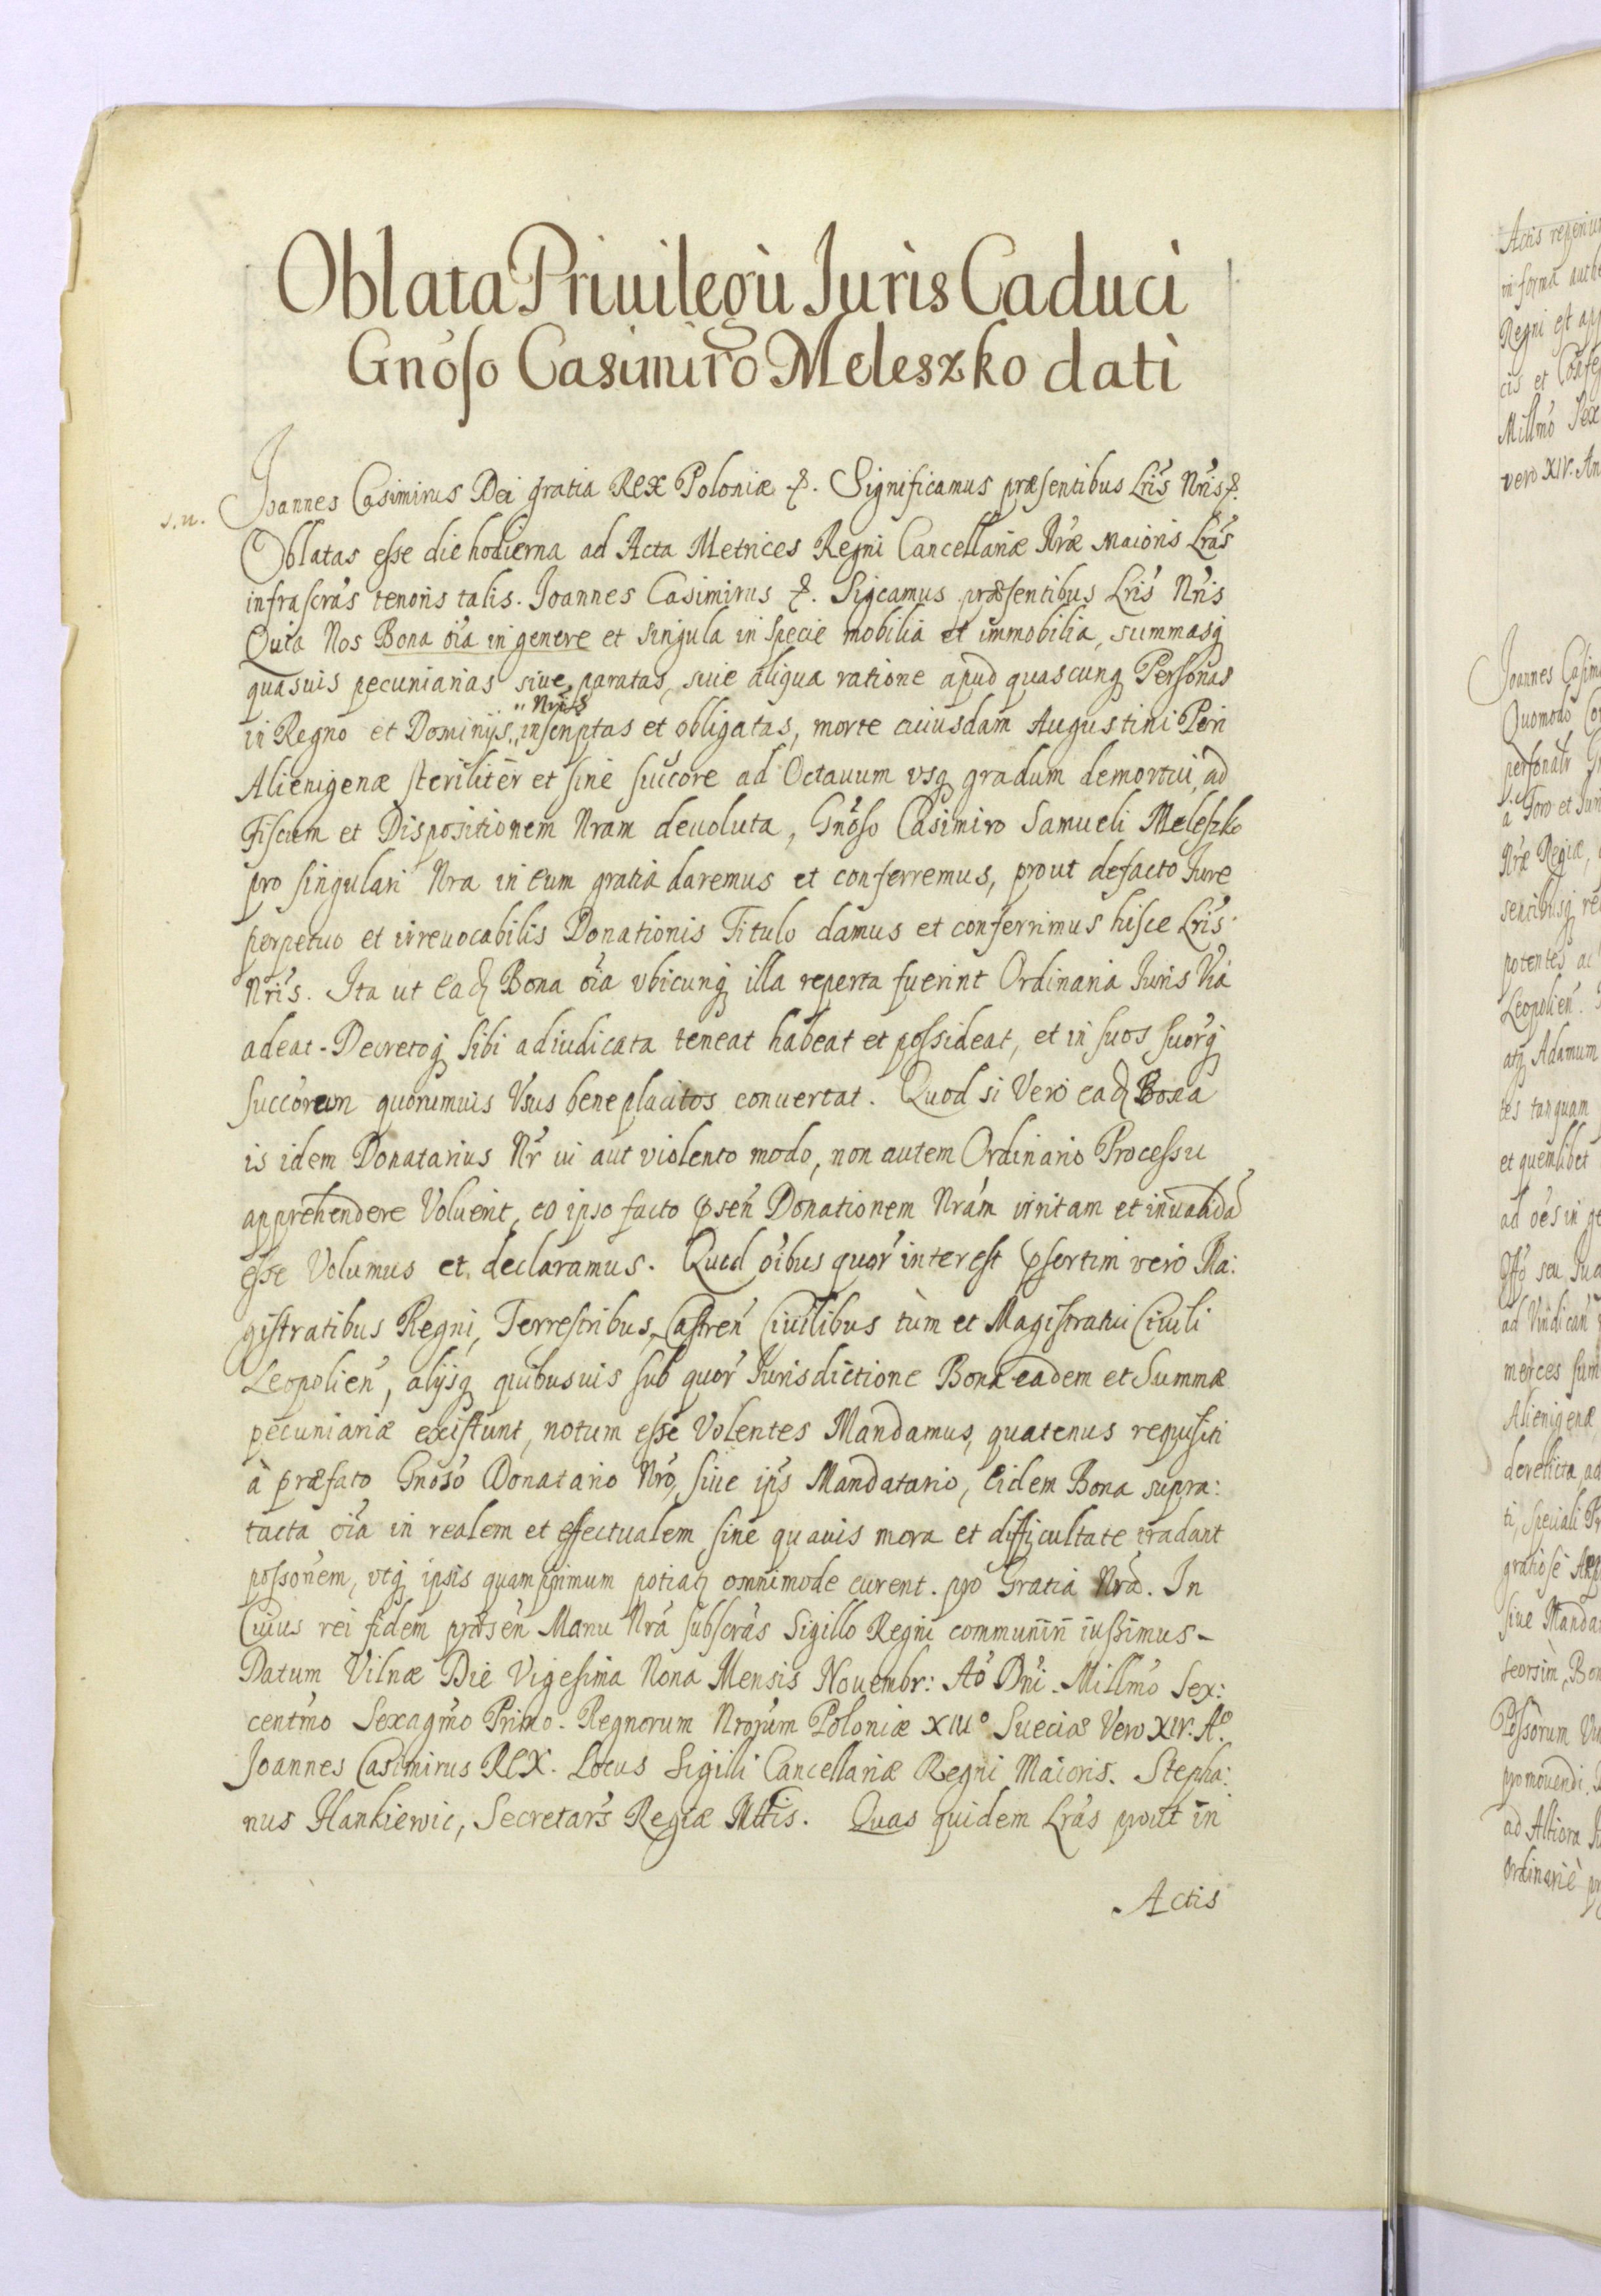 Oblata Priuilegii Iuris Caduci
Gnoso Casimiro Meleszko dati
Joannes Casimirus Dei gratia Rex Poloniæ &. Significamus præsentibus Lris Nris &.
s.n.
Oblatas esse die hodierna ad Acta Metrices Regni Cancellariæ Nræ Maioris Lras
infrascras tenoris talis. Joannes Casimirus &. Sigcamus præsentibus Lris Nris
Quia Nos Bona oia in genere et singula in specie mobilia et immobilia, summasq
quasuis pecuniarias siue paratas, siue aliqua ratione apud quascunq Personas
in Regno et Dominijs "Nris" inscriptas et obligatas, morte cuiusdam Augustini Peri
Alienigenæ steriliter et sine succore ad Octauum vsq gradum demortui, ad
Fiscum et Dispositionem Nram deuoluta, Gnoso Casimiro Samueli Meleszko
pro singulari Nra in eum gratia daremus et conferremus, prout defacto Iure
perpetuo et irreuocabilis Donationis Titulo damus et conferrimus hisce Lris
Nris. Ita ut eadq Bona oia vbicunq illa reperta fuerint Ordinaria Iuris Via
adeat - Decretoq sibi adiudicata teneat habeat et possideat, et in suos suorq
succorum quorumuis Vsus beneplacitos conuertat. Quod si Vero eadq Bona
is idem Donatarius Nr ui aut violento modo, non autem Ordinario Processu
apprehendere Voluerit, eo ipso facto psen Donationem Nram irritam et inualida
esse Volumus et declaramus. Quod oibus quor interest psertim vero Ma:
gistratibus Regni, Terrestribus, Castren Ciuilibus tùm et Magistratui Ciuili
Leopolien, alijsq quibusuis sub quor Iurisdictione Bona eadem et Summæ
pecuniariæ existunt, notum esse Volentes Mandamus, quatenus requisiti
à præfato Gnoso Donatario Nro, siue ips Mandatario, eidem Bona supra:
tacta oia in realem et effectualem sine quauis mora et difficultate tradant
possonem, vtq ipsis quamprimum potiatq omnimode curent. pro Gratia Nra. In
Cuius rei fidem præsen Manu Nra subscras Sigillo Regni communiri iussimus -
Datum Vilnæ Die Vigesima Nona Mensis Nouembr: Ao Dni. Millmo Sex:
centmo Sexagmo Primo. Regnorum Nrorum Poloniæ XIIIo Sueciæ Vero XIV. Ao
Joannes Casimirus Rex. Locus Sigilli Cancellariæ Regni Maioris. Stepha:
nus Hankiewic, Secretars Regiæ Mttis. Quas quidem Lras prout in
Actis